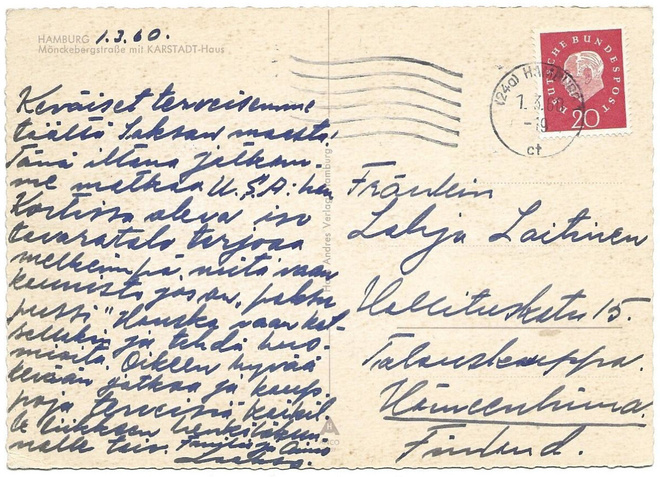 HAMBURG 1.3.60.
Mönckebergstraße mit KARSTADT-Haus
Keväiset terveisemme
täältä Saksan maasta.
Tänä iltana jatkam-
me matkaa U.S.A:han
Kortissa oleva iso
tavaratalo tarjoaa
melkeinpä, mitä vaan
jos on
Hauska vaan kat-
sella ja tehdä huo-
mioita. Oikein hyvää
kevään jatkoa ja kaup-
poja. Terveisiä kaikil-
le liikkeen henkilökun-
nalle teiv.
DEUTSCHE BUNDESPOST
20
(24a) HAMBURG
1.3.60
-19
ct
Fräulein
Lahja Laitinen
Hallituskatu 15.
Talouskauppa.
Hämeenlinna.
Finland.